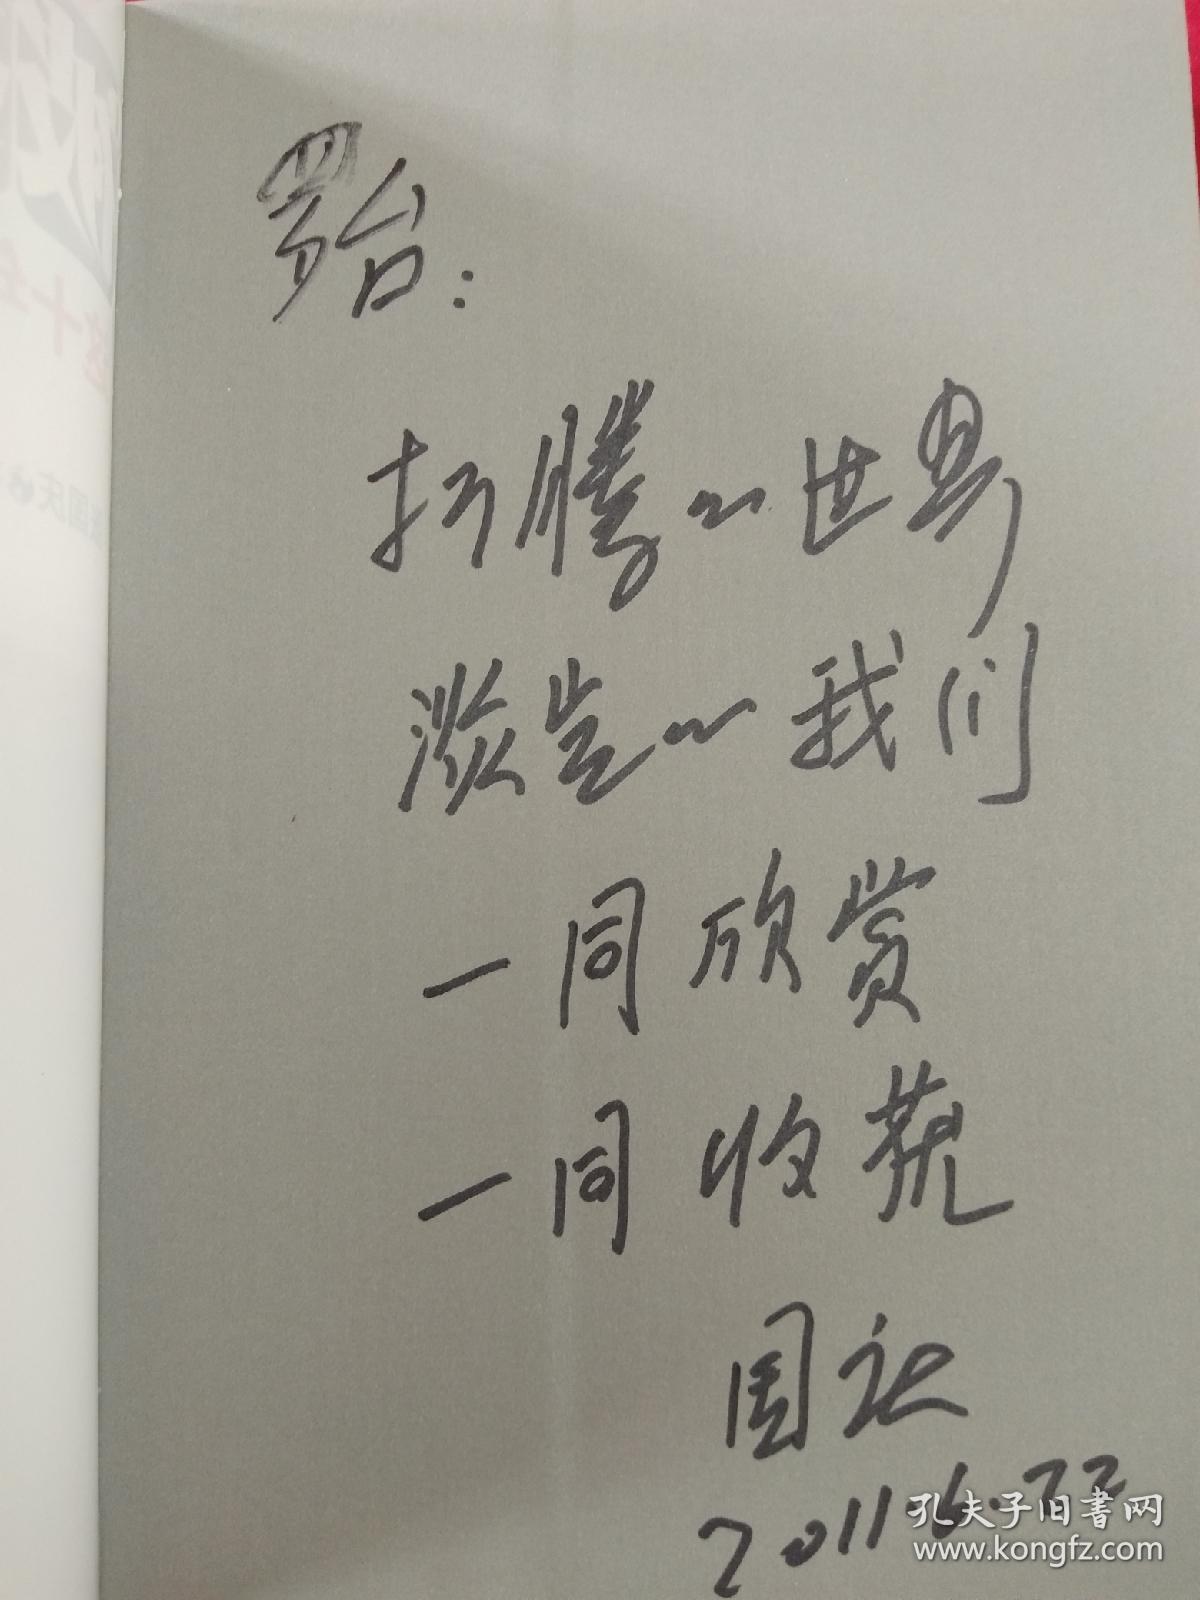 罗台：
折腾的世界
的我们
一同欣赏
一同收获
国庆
2011.6.22
孔夫子旧书网
www.kongfz.com